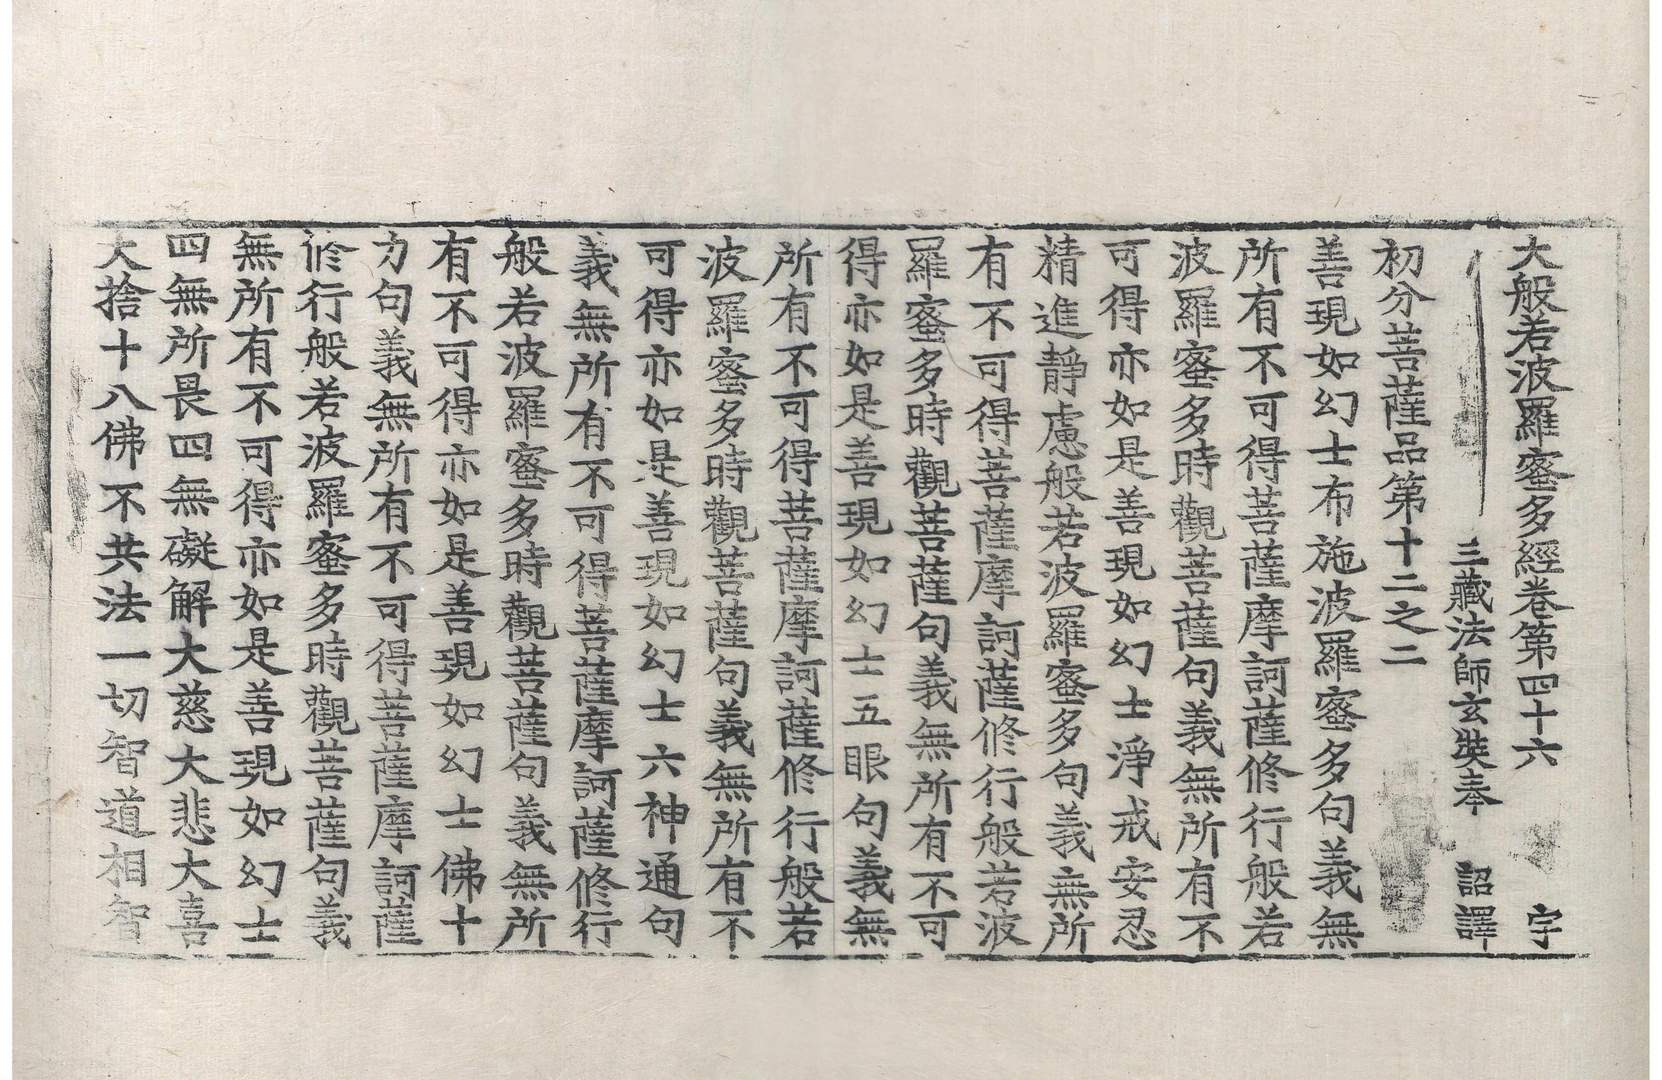 大般若波羅蜜多經卷第四十六　宇
三藏法師玄奘奉　詔譯
初分菩薩品第十二之二
善現如幻士布施波羅蜜多句義無
所有不可得菩薩摩訶薩修行般若
波羅蜜多時觀菩薩句義無所有不
可得亦如是善現如幻士淨戒安忍
精進靜慮般若波羅蜜多句義無所
有不可得菩薩摩訶薩修行般若波
羅蜜多時觀菩薩句義無所有不可
得亦如是善現如幻士五眼句義無
所有不可得菩薩摩訶薩修行般若
波羅蜜多時觀菩薩句義無所有不
可得亦如是善現如幻士六神通句
義無所有不可得菩薩摩訶薩修行
般若波羅蜜多時觀菩薩句義無所
有不可得亦如是善現如幻士佛十
力句義無所有不可得菩薩摩訶薩
修行般若波羅蜜多時觀菩薩句義
無所有不可得亦如是善現如幻士
四無所畏四無礙解大慈大悲大喜
大捨十八佛不共法一切智道相智